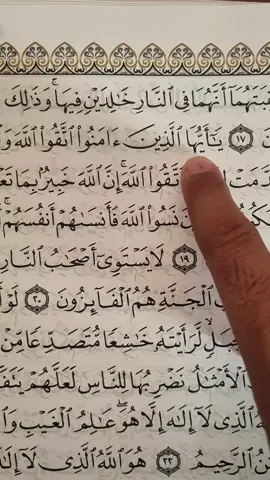 أَنَّهُمَا فِى ٱلنَّارِ خَٰلِدَيْنِ فِيهَا ۚ وَذَٰلِكَ
١٧ يَٰٓأَيُّهَا ٱلَّذِينَ ءَامَنُوا۟ ٱتَّقُوا۟ ٱللَّهَ
ٱللَّهَ ۚ إِنَّ ٱللَّهَ خَبِيرٌۢ بِمَا
نَسُوا۟ ٱللَّهَ فَأَنسَىٰهُمْ أَنفُسَهُمْ ۚ
١٩ لَا يَسْتَوِىٓ أَصْحَٰبُ ٱلنَّارِ
ٱلْجَنَّةِ هُمُ ٱلْفَآئِزُونَ ٢٠ لَوْ
لَّرَأَيْتَهُۥ خَٰشِعًا مُّتَصَدِّعًا مِّنْ
ٱلْأَمْثَٰلُ نَضْرِبُهَا لِلنَّاسِ لَعَلَّهُمْ
ٱلَّذِى لَآ إِلَٰهَ إِلَّا هُوَ ۖ عَٰلِمُ ٱلْغَيْبِ
ٱلرَّحِيمُ ٢٢ هُوَ ٱللَّهُ ٱلَّذِى لَآ إِلَٰهَ